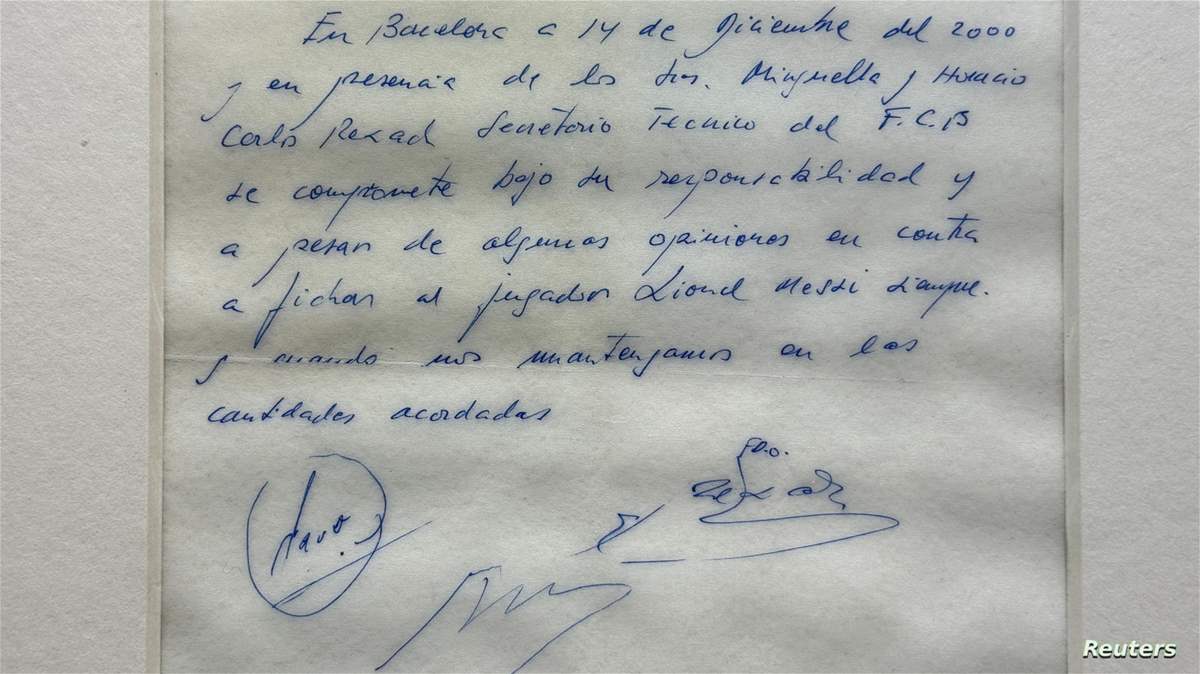 En Barcelona a 14 de Diciembre del 2000
y en presencia de los Srs. Minguella y Horacio
Carlos Rexach Secretario Tecnico del F.C.B
se compromete bajo su responsabilidad y
a pesar de algunas opiniones en contra
a fichar al jugador Lionel Messi siempre.
y cuando nos mantengamos en las
cantidades acordadas
Fdo.
Rexach
Reuters